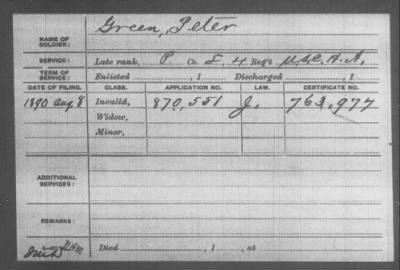 Green, Peter
NAME OF SOLDIER:
SERVICE: Late rank, P Co. F, 4 Reg't U.S.C.H.A.
TERM OF SERVICE: Enlisted , 1 Discharged , 1
DATE OF FILING. CLASS. APPLICATION NO. LAW. CERTIFICATE NO.
1890 Aug. 8 Invalid, 870,551 J. 763,977
Widow,
Minor,
ADDITIONAL SERVICES:
REMARKS:
Died , 1 , at